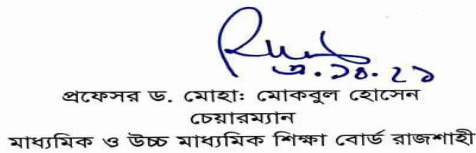 ৩.১০.২১
প্রফেসর ড. মোহাঃ মোকবুল হোসেন
চেয়ারম্যান
মাধ্যমিক ও উচ্চ মাধ্যমিক শিক্ষা বোর্ড রাজশাহী